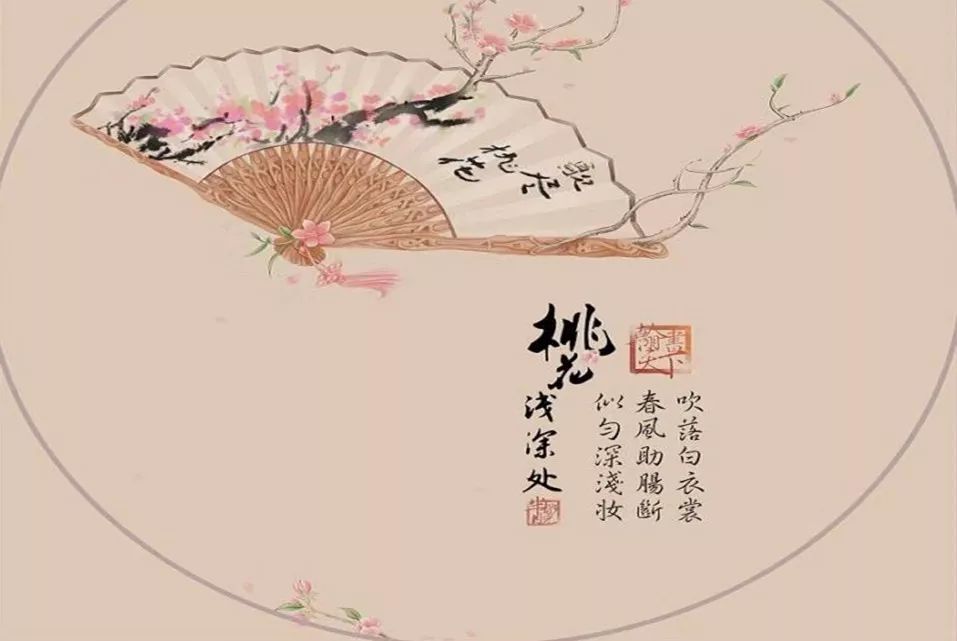 歌尽
桃花
桃花
浅深处
似匀深淺妆
春風助腸斷
吹落白衣裳